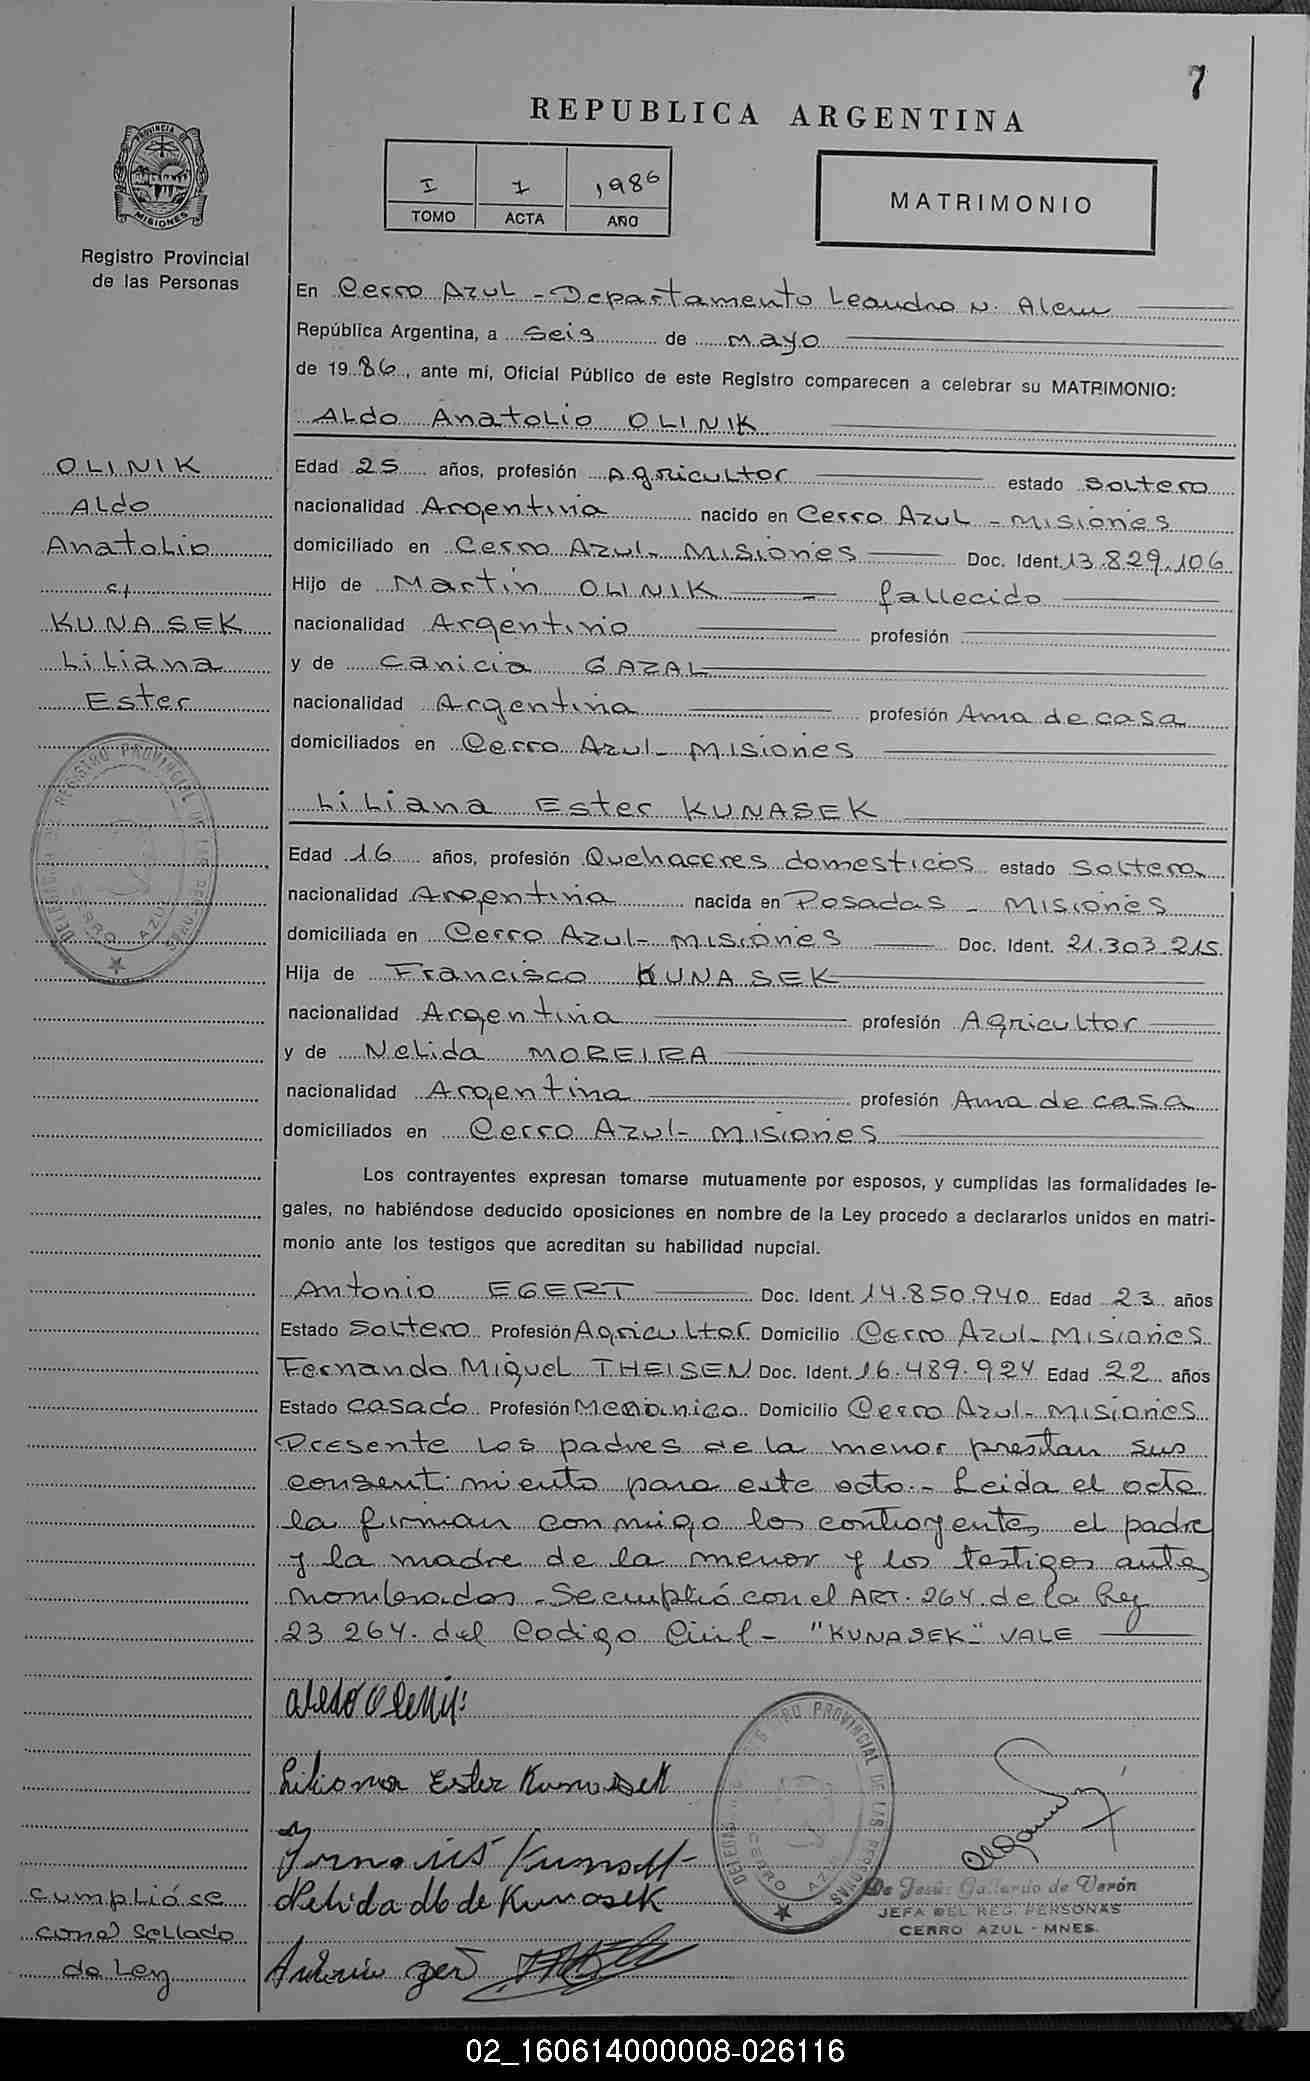 7
REPUBLICA ARGENTINA
PROVINCIA DE
MISIONES
Registro Provincial
de las Personas
I 7 1986
TOMO ACTA AÑO
MATRIMONIO
En Cerro Azul - Departamento Leandro N. Alem
República Argentina, a seis de mayo
de 1986, ante mí, Oficial Público de este Registro comparecen a celebrar su MATRIMONIO:
Aldo Anatolio OLINIK
OLINIK
Aldo
Anatolio
c/
KUNASEK
Liliana
Ester
Edad 25 años, profesión Agricultor estado soltero
nacionalidad Argentina nacido en Cerro Azul - Misiones
domiciliado en Cerro Azul - Misiones Doc. Ident. 13.829.106
Hijo de Martín OLINIK - fallecido
nacionalidad Argentino profesión
y de Canicia GAZAL
nacionalidad Argentina profesión Ama de casa
domiciliados en Cerro Azul - Misiones
Liliana Ester KUNASEK
Edad 16 años, profesión Quehaceres domesticos estado soltera
nacionalidad Argentina nacida en Posadas - Misiones
domiciliada en Cerro Azul - Misiones Doc. Ident. 21.303.215
Hija de Francisco KUNASEK
nacionalidad Argentina profesión Agricultor
y de Nelida MOREIRA
nacionalidad Argentina profesión Ama de casa
domiciliados en Cerro Azul - Misiones
Los contrayentes expresan tomarse mutuamente por esposos, y cumplidas las formalidades le-
gales, no habiéndose deducido oposiciones en nombre de la Ley procedo a declararlos unidos en matri-
monio ante los testigos que acreditan su habilidad nupcial.
Antonio EGERT Doc. Ident. 14.850.940 Edad 23 años
Estado Soltero Profesión Agricultor Domicilio Cerro Azul - Misiones
Fernando Miguel THEISEN Doc. Ident. 16.489.924 Edad 22 años
Estado casado Profesión Mecanico Domicilio Cerro Azul - Misiones
Presente los padres de la menor prestan sus
consentimiento para este acto.- Leida el acta
la firman conmigo los contrayentes, el padre
y la madre de la menor y los testigos antes
nombrados - Se cumplió con el ART. 264 de la Ley
23 264. del Codigo Civil - "KUNASEK" VALE
Liliana Ester Kunasek
Nelida de Kunasek
DELEGACION REGISTRO PROVINCIAL DE LAS PERSONAS
CERRO AZUL
De Jesús Gallardo de Verón
JEFA DEL REG. PERSONAS
CERRO AZUL - MNES.
cumplióse
con el sellado
de Ley
02_160614000008-026116